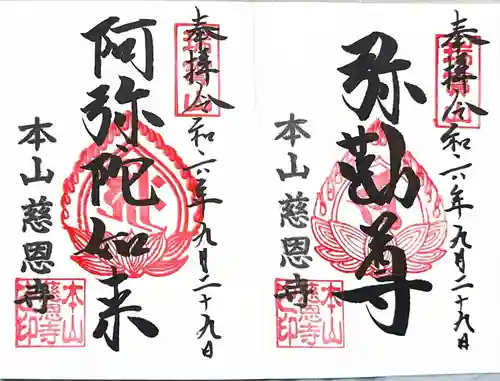 奉拝 令和六年九月二十九日
弥勒尊
本山慈恩寺
本山
慈恩寺
之印
奉拝 令和六年九月二十九日
阿弥陀如来
本山慈恩寺
本山
慈恩寺
之印